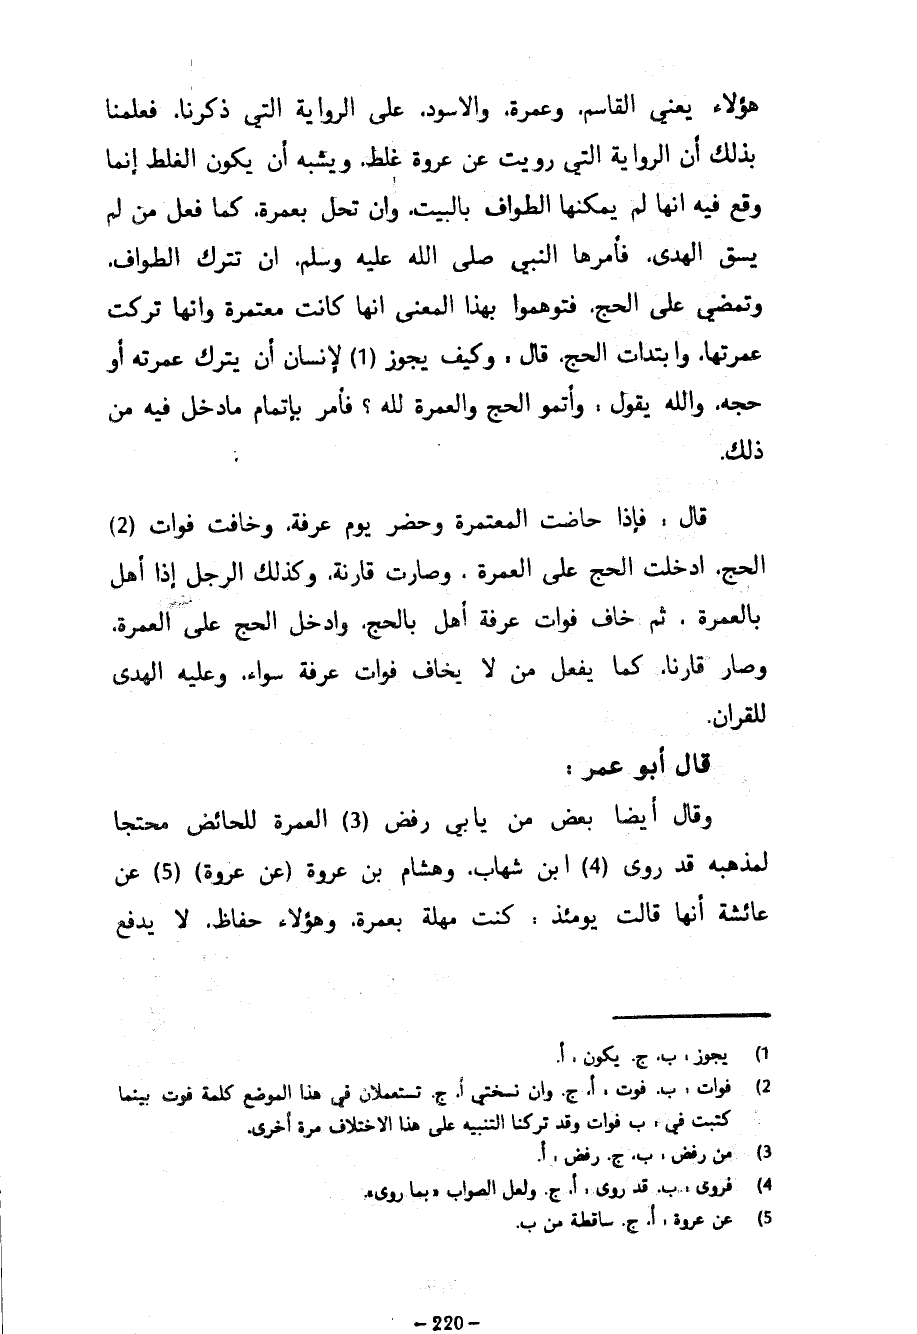 هؤلاء يعني القاسم، وعمرة، والاسود، على الرواية التي ذكرنا، فعلمنا
بذلك أن الرواية التي رويت عن عروة غلط، ويشبه أن يكون الغلط إنما
وقع فيه انها لم يمكنها الطواف بالبيت، وان تحل بعمرة، كما فعل من لم
يسق الهدى، فأمرها النبي صلى الله عليه وسلم، ان تترك الطواف،
وتمضي على الحج، فتوهموا بهذا المعنى انها كانت معتمرة وانها تركت
عمرتها، وابتدات الحج، قال : وكيف يجوز (1) لإنسان أن يترك عمرته أو
حجه، والله يقول : وأتمو الحج والعمرة لله ؟ فأمر بإتمام مادخل فيه من
ذلك.
قال : فإذا حاضت المعتمرة وحضر يوم عرفة، وخافت فوات (2)
الحج، ادخلت الحج على العمرة ، وصارت قارنة، وكذلك الرجل إذا أهل
بالعمرة ، ثم خاف فوات عرفة أهل بالحج، وادخل الحج على العمرة،
وصار قارنا، كما يفعل من لا يخاف فوات عرفة سواء، وعليه الهدى
للقران.
قال أبو عمر :
وقال أيضا بعض من يابي رفض (3) العمرة للحائض محتجا
لمذهبه قد روى (4) ابن شهاب، وهشام بن عروة (عن عروة) (5) عن
عائشة أنها قالت يومئذ : كنت مهلة بعمرة، وهؤلاء حفاظ، لا يدفع
1) يجوز : ب، ج. يكون : أ.
2) فوات : ب. فوت : أ، ج. وان نسختي أ. ج. تستعملان في هذا الموضع كلمة فوت بينما
كتبت في : ب فوات وقد تركنا التنبيه على هذا الاختلاف مرة أخرى.
3) من رفض : ب، ج. رفض : أ.
4) فروى : ب. قد روى : أ، ج. ولعل الصواب «بما روى».
5) عن عروة : أ، ج. ساقطة من ب.
- 220 -